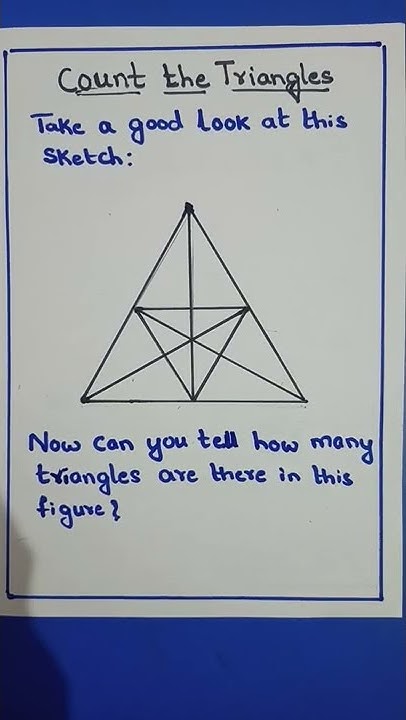 Count the Triangles
Take a good look at this
Sketch:
Now can you tell how many
triangles are there in this
figure?